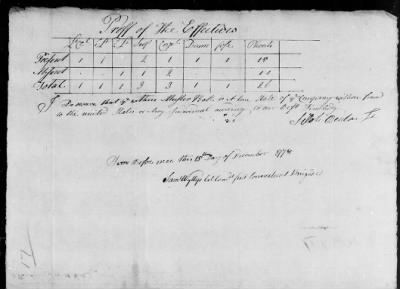 Proof of the Effectives
Capt Lt Lt Serj Corpl Drum fife Privts
Present 1 1 2 1 1 1 18
Absent 1 1 2
Total 1 1 1 3 3 1 1
I Do swear that ye within Muster Roll is a true State of ye Company without fraud
to the united States or any Individual according to our Best Knowledg
Sworn before mee this Day of December 1778
Saml Wyllys Col Comdt first Connecticut Brigade
17